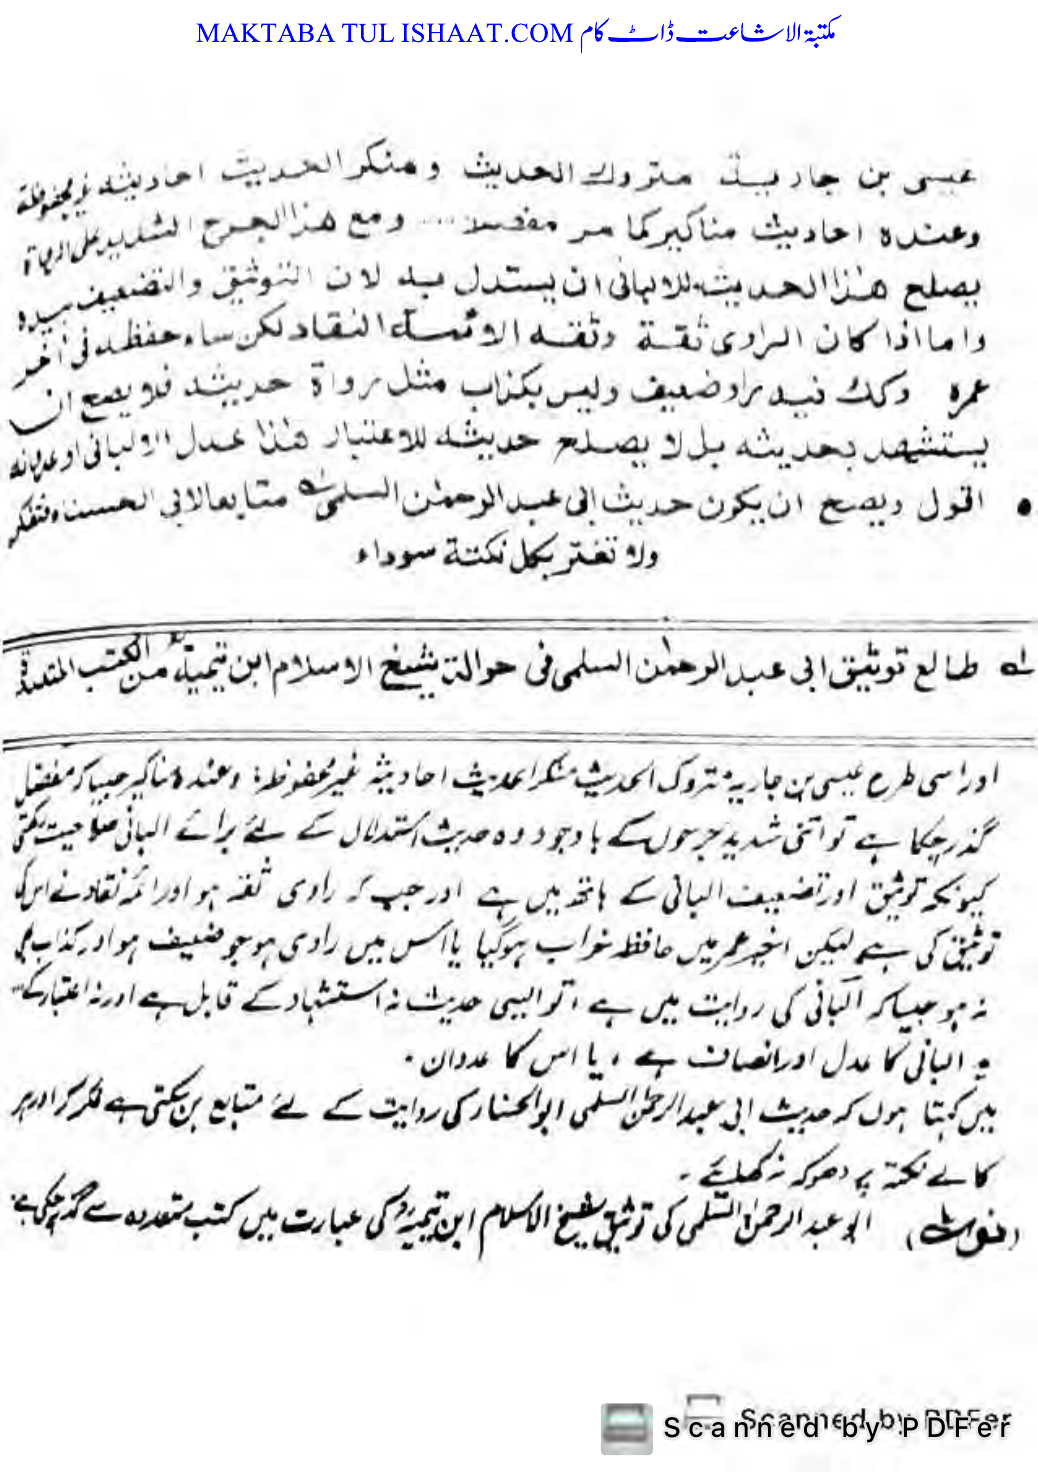 MAKTABA TUL ISHAAT.COM مکتبۃ الاشاعت ڈاٹ کام
عيسى بن جارية متروك الحديث و منكر الحديث احاديثه غير محفوظة
وعنده احاديث مناكير كما مر مفصلا .... ومع هذا الجرح الشديد على الرواة
يصلح هذا الحديث للالبانى ان يستدل به لان التوثيق والتضعيف بيده
واما اذا كان الراوى ثقة وثقه الائمة النقاد لكن ساء حفظه فى آخر
عمره وكك فيه راو ضعيف وليس بكذاب مثل رواة حديثه فلا يصح ان
يستشهد بحديثه بل لا يصلح حديثه للاعتبار هذا عدل الالبانى او عدوانه
• اقول ويصح ان يكون حديث ابى عبد الرحمٰن السلمى لہ متابعا لابى الحسناء فتفكر
ولا تغتر بكل نكتة سوداء
لہ طالع توثيق ابى عبد الرحمٰن السلمى فى حوالة شيخ الاسلام ابن تيمية من الكتب المتعددة
اور اسی طرح عیسی بن جاریہ متروک الحدیث منکر الحدیث احادیثہ غیر محفوظۃ وعندہ مناکیر جیسا کہ مفصل
گذر چکا ہے تو اتنی شدید جرحوں کے باوجود وہ حدیث استدلال کے لئے برائے البانی صلاحیت رکھتی
کیونکہ توثیق اور تضعیف البانی کے ہاتھ میں ہے اور جب کہ راوی ثقہ ہو اور ائمہ نقاد نے اس کی
توثیق کی ہے لیکن اخیر عمر میں حافظہ خراب ہوگیا یا اس میں راوی ہو جو ضعیف ہو اور کذاب بھی
نہ ہو جیسا کہ البانی کی روایت میں ہے ، تو ایسی حدیث نہ استشہاد کے قابل ہے اور نہ اعتبار کے
یہ البانی کا عدل اور انصاف ہے ، یا اس کا عدوان ۔
میں کہتا ہوں کہ حدیث ابی عبد الرحمٰن السلمی ابو الحسناء کی روایت کے لئے متابع بن سکتی ہے فکر کر اور ہر
کالے نکتہ پر دھوکہ نہ کھائیے ۔
(نوٹ لہ) ابو عبد الرحمٰن السلمی کی توثیق شیخ الاسلام ابن تیمیہؒ کی عبارت میں کتب متعددہ سے گذر چکی ہے
Scanned by PDFer
Scanned by PDFer